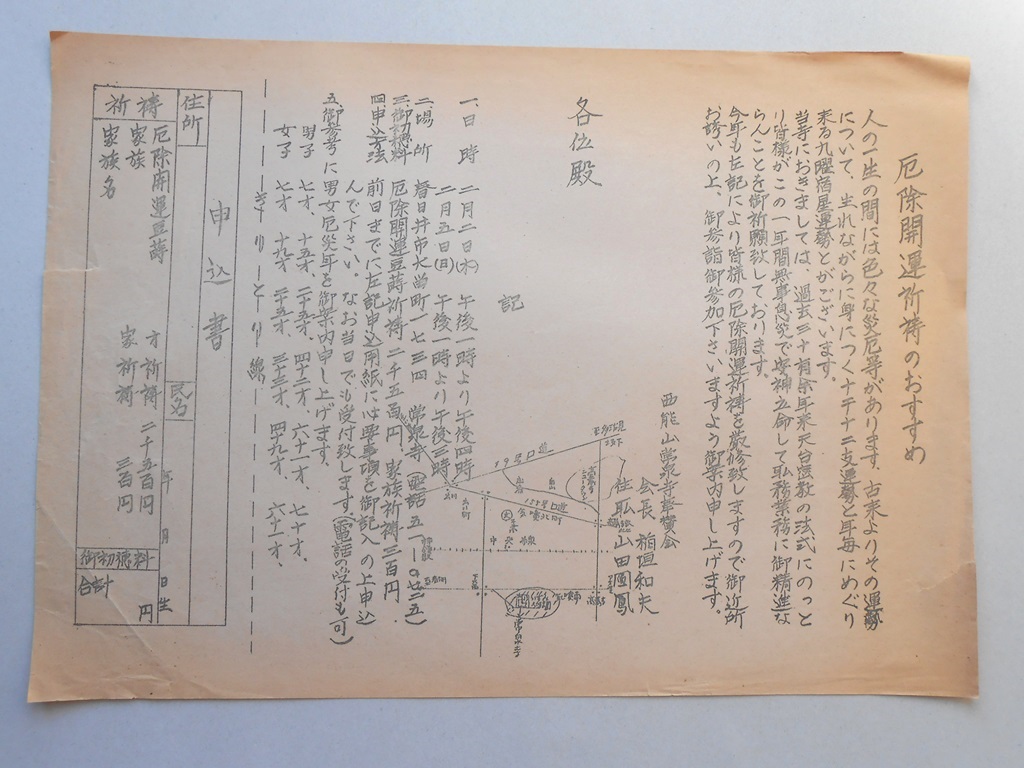 厄除開運祈祷のおすすめ
人の一生の間には色々な災厄等があります、古来よりその運勢
について、生れながらに身につく十干十二支運勢と年毎にめぐり
来る九曜宿星運勢とがございます。
当寺におきましては、過去三十有余年来天台密教の法式にのっと
り皆様がこの一年間無事息災で安神立命して私務業務に御精進な
らんことを御祈願致しております。
今年も左記により皆様の厄除開運祈祷を厳修致しますので御近所
お誘いの上、御参詣御参加下さいますよう御案内申し上げます。
西能山常泉寺奉賛会
会長 稲垣和夫
住職 山田圓鳳
各位殿
記
一、日時 二月二日(木) 午後一時より午後四時
二月五日(日) 午後一時より午後三時
二、場所 春日井市大留町一七三四 常泉寺(電話 五一-〇七二五)
三、御初穂料 厄除開運豆蒔祈祷 二千五百円、家族祈祷三百円.
四、申込方法 前日までに左記申込用紙に必要事項を御記入の上申込
んで下さい。 なお当日でも受付致します(電話の受付も可)
五、御参考に男女厄災年を御案内申し上げます。
男子 七才、十五才、二十五才、四十二才、六十一才、七十才、
女子 七才、十九才、二十五才、三十三才、四十九才、六十一才、
きりとり線
申込書
住所
氏名
年 月 日生
祈祷
厄除開運豆蒔 才祈祷 二千五百円
家族 家祈祷 三百円
家族名
御初穂料
合計 円
19号口道
中央線
常泉寺